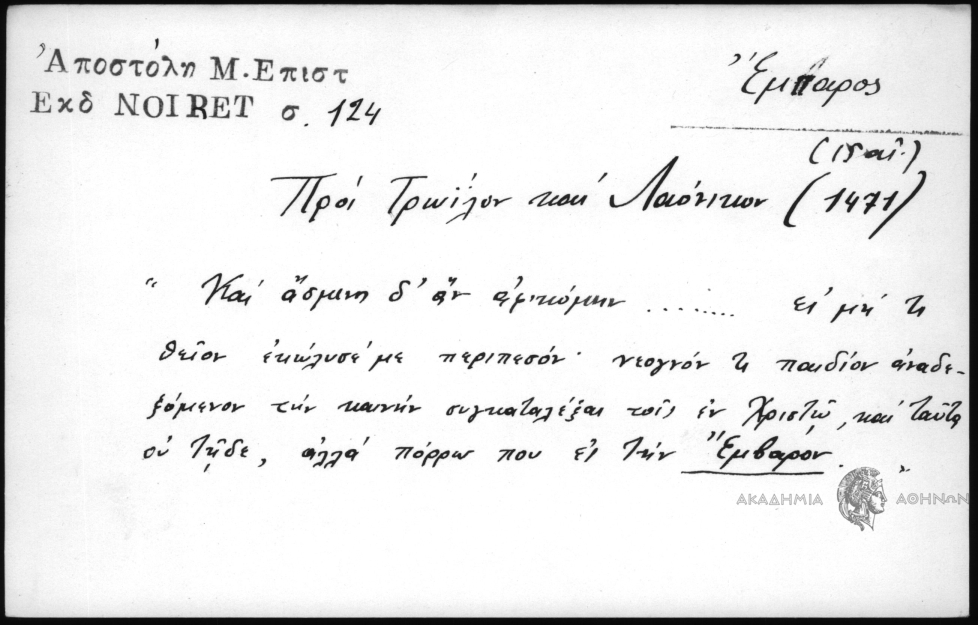 Ἀποστόλη Μ. Επιστ
Εκδ NOIRET σ. 124
Ἔμβαρος
(ιδαῒ.)
Πρός Τρωΐλον καί Λαόνικον (1471)
" Καί ἄσμενη δ' ἄν ἀφικόμην ........ εἰ μή τι
θεῖον ἐκώλυσέ με περιπεσόν· νεογνόν τι παιδίον ἀναδε-
ξόμενον τήν καινήν συγκαταλέξαι τοῖς ἐν Χριστῷ, καί ταῦτα
οὐ τῇδε, ἀλλά πόρρω που εἰς τήν Ἔμβαρόν. "
ΑΚΑΔΗΜΙΑ ΑΘΗΝΩΝ